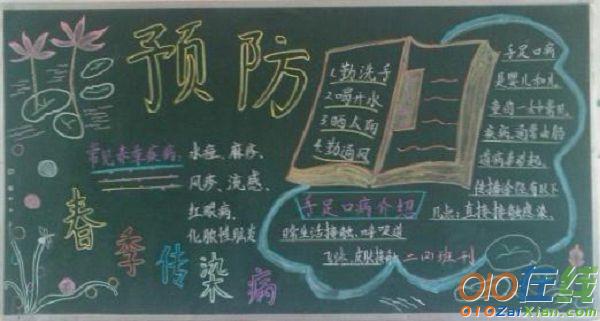 预防
春季传染病
常见春季疾病
水痘、麻疹、
风疹、流感、
红眼病、
化脓性脑炎
1.勤洗手
2.喝开水
3.晒太阳
4.勤通风
手足口病介绍
手足口病
是婴儿和儿
童的一种常见
疾病
道病毒引起
传播途径有以下
几点：直接接触感染、
日常生活接触、呼吸道
飞沫、皮肤接触
二(四)班刊
010在线
010ZaiXian.com